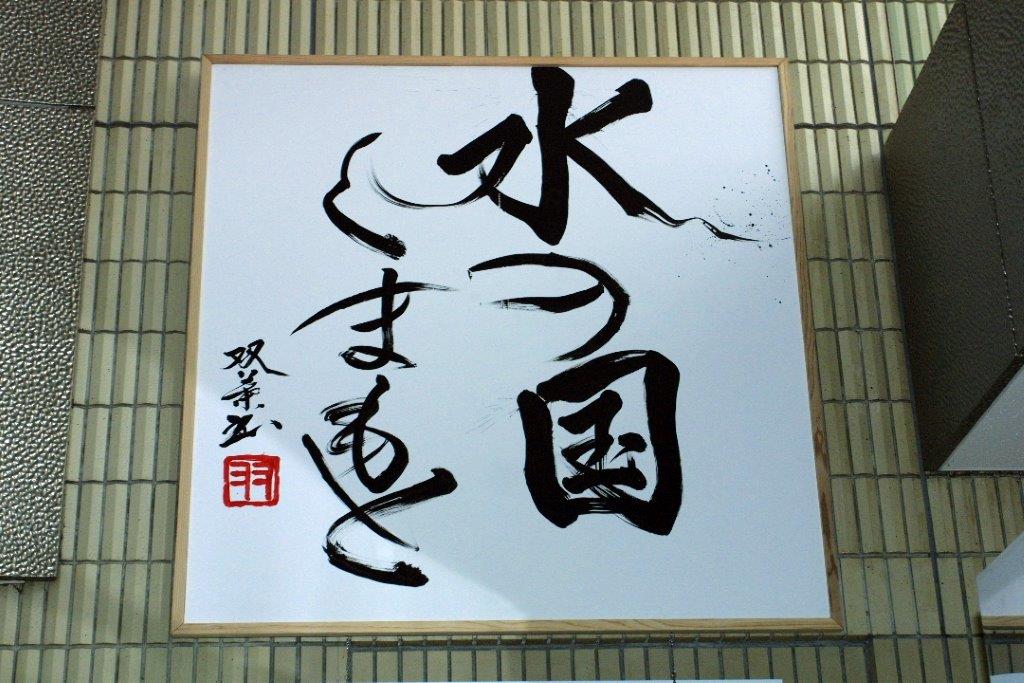 水の国
くまもと
双葉書
羽